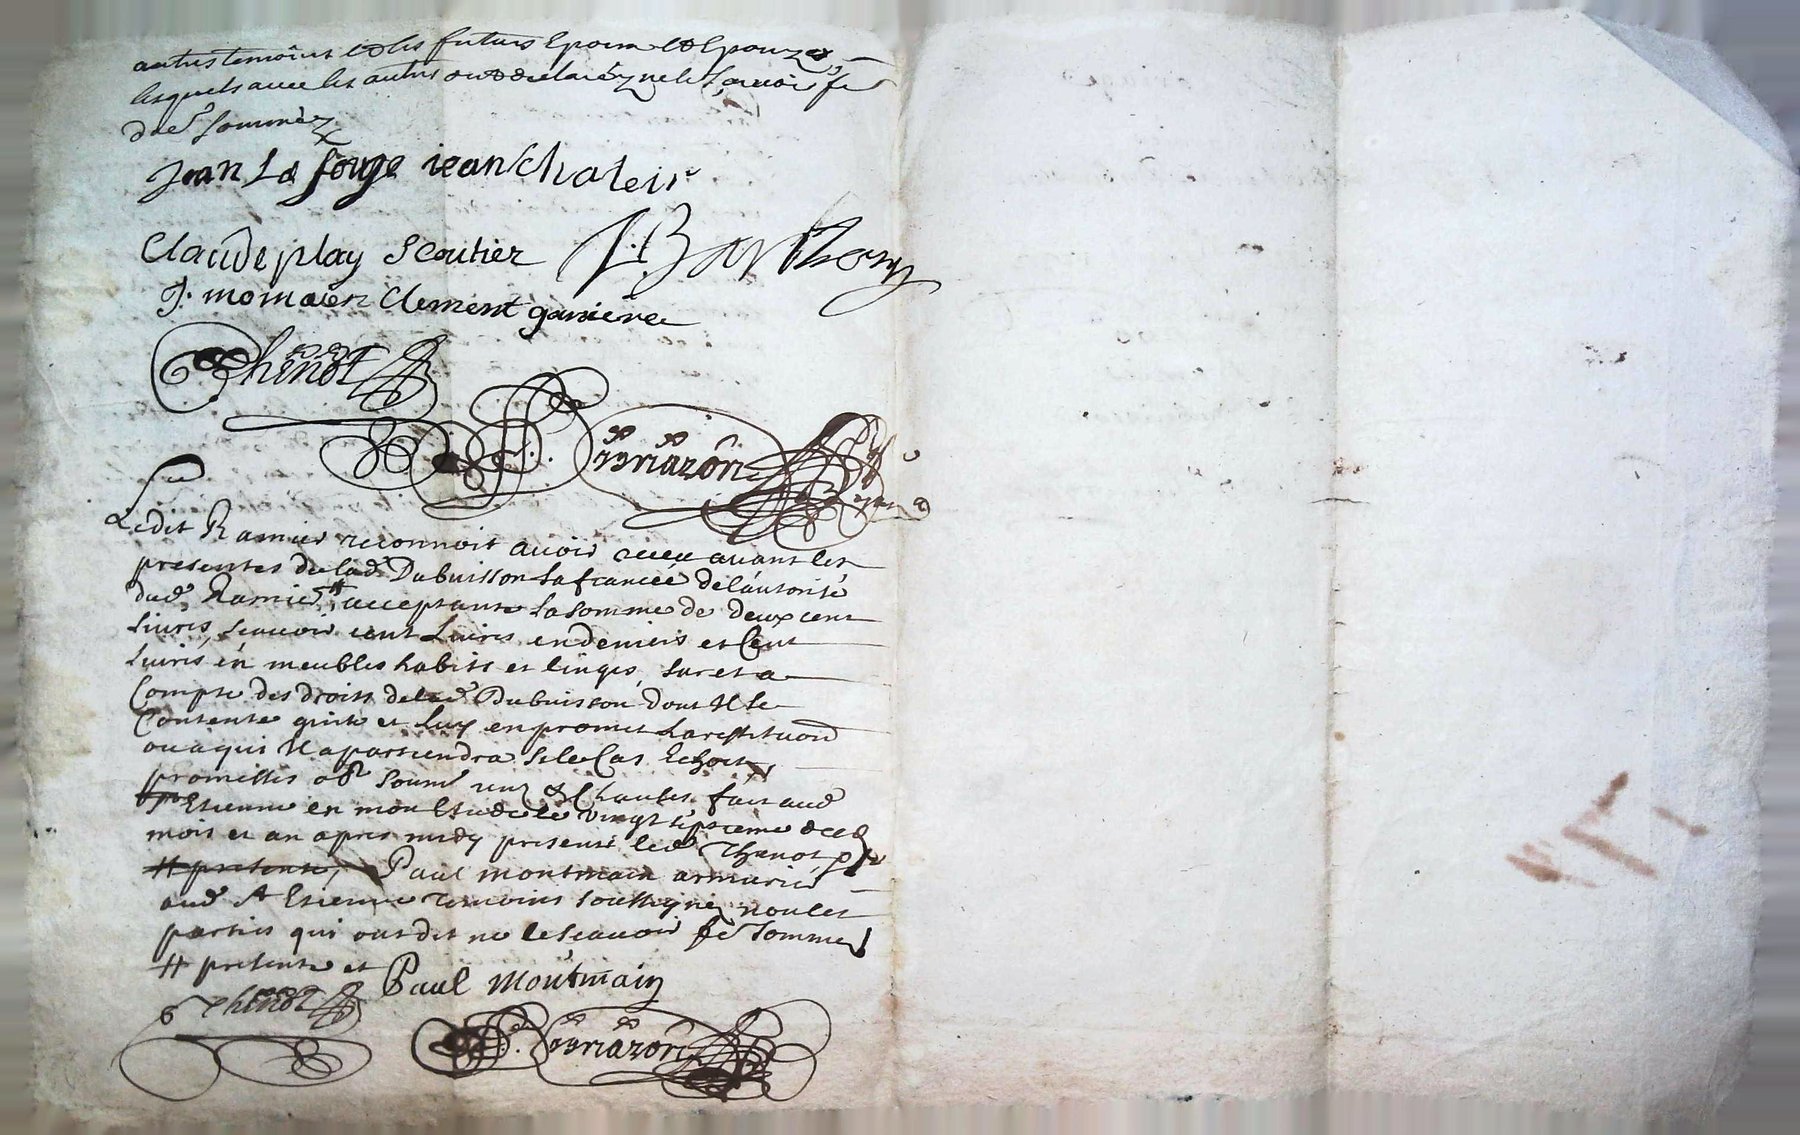 autres temoins et les futurs Epoux et Epouze,
lesquels avec les autres ont declaréz ne le scavoir fe
de ce sommèz
Jean La forge iean Chaleir
Claude play Scoutier J. Barthomy
J. momaén Clement ganiere
Thenot
Mazôn
Ledit Ramier reconnoit avoir receu avant les
presentes de lad.e Dubuisson sa fiancée de l'autorité
dud. Ramier # acceptante la somme de deux cent
livres, scavoir cent Livres en deniers et Cent
Livres en meubles habits et linges, sur et a
Compte des droits de lad.e Dubuisson dont Il se
Contente quite et Luy en promet La restituon
ou a qui Il apartiendra si le Cas Echoit,
promettes obl soum renz & Chautes. fait aud
St Etienne en mon Etude le vingt septieme dud
mois et an apres midy presents led. Thenot pr
# presente, Paul montmain armurier
aud. St Etienne Temoins soussignéz non les
parties qui ont dit ne le scavoir fe sommes
# presente et Paul Moutmain
Thenot Mazôn